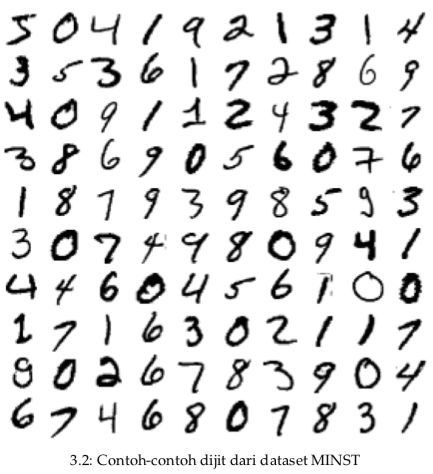 5 0 4 1 9 2 1 3 1 4
3 5 3 6 1 7 2 8 6 9
4 0 9 1 1 2 4 3 2 7
3 8 6 9 0 5 6 0 7 6
1 8 7 9 3 9 8 5 9 3
3 0 7 4 9 8 0 9 4 1
4 4 6 0 4 5 6 1 0 0
1 7 1 6 3 0 2 1 1 7
9 0 2 6 7 8 3 9 0 4
6 7 4 6 8 0 7 8 3 1
3.2: Contoh-contoh dijit dari dataset MINST